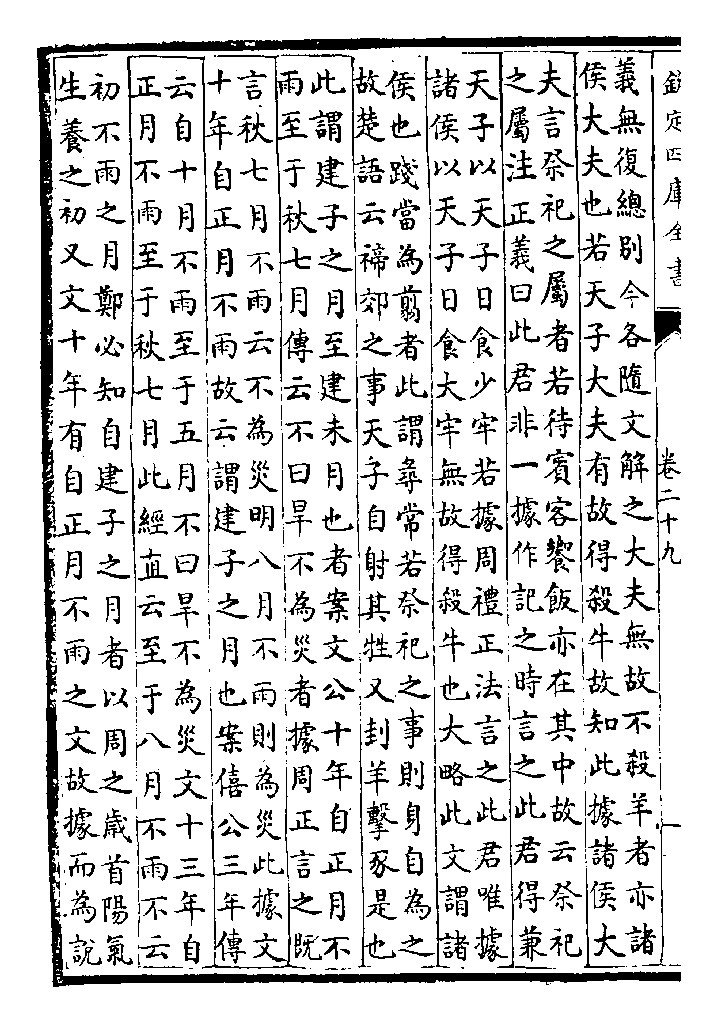 欽定四庫全書
卷二十九
義無復總別今各隨文解之大夫無故不殺羊者亦諸
侯大夫也若天子大夫有故得殺牛故知此據諸侯大
夫言祭祀之屬者若待賓客饗飯亦在其中故云祭祀
之屬注正義曰此君非一據作記之時言之此君得兼
天子以天子日食少牢若據周禮正法言之此君唯據
諸侯以天子日食大牢無故得殺牛也大略此文謂諸
侯也踐當為翦者此謂尋常若祭祀之事則身自為之
故楚語云禘郊之事天子自射其牲又刲羊擊豕是也
此謂建子之月至建未月也者案文公十年自正月不
雨至于秋七月傳云不曰旱不為災者據周正言之既
言秋七月不雨云不為災明八月不雨則為災此據文
十年自正月不雨故云謂建子之月也案僖公三年傳
云自十月不雨至于五月不曰旱不為災文十三年自
正月不雨至于秋七月此經直云至于八月不雨不云
初不雨之月鄭必知自建子之月者以周之歲首陽氣
生養之初又文十年有自正月不雨之文故據而為說